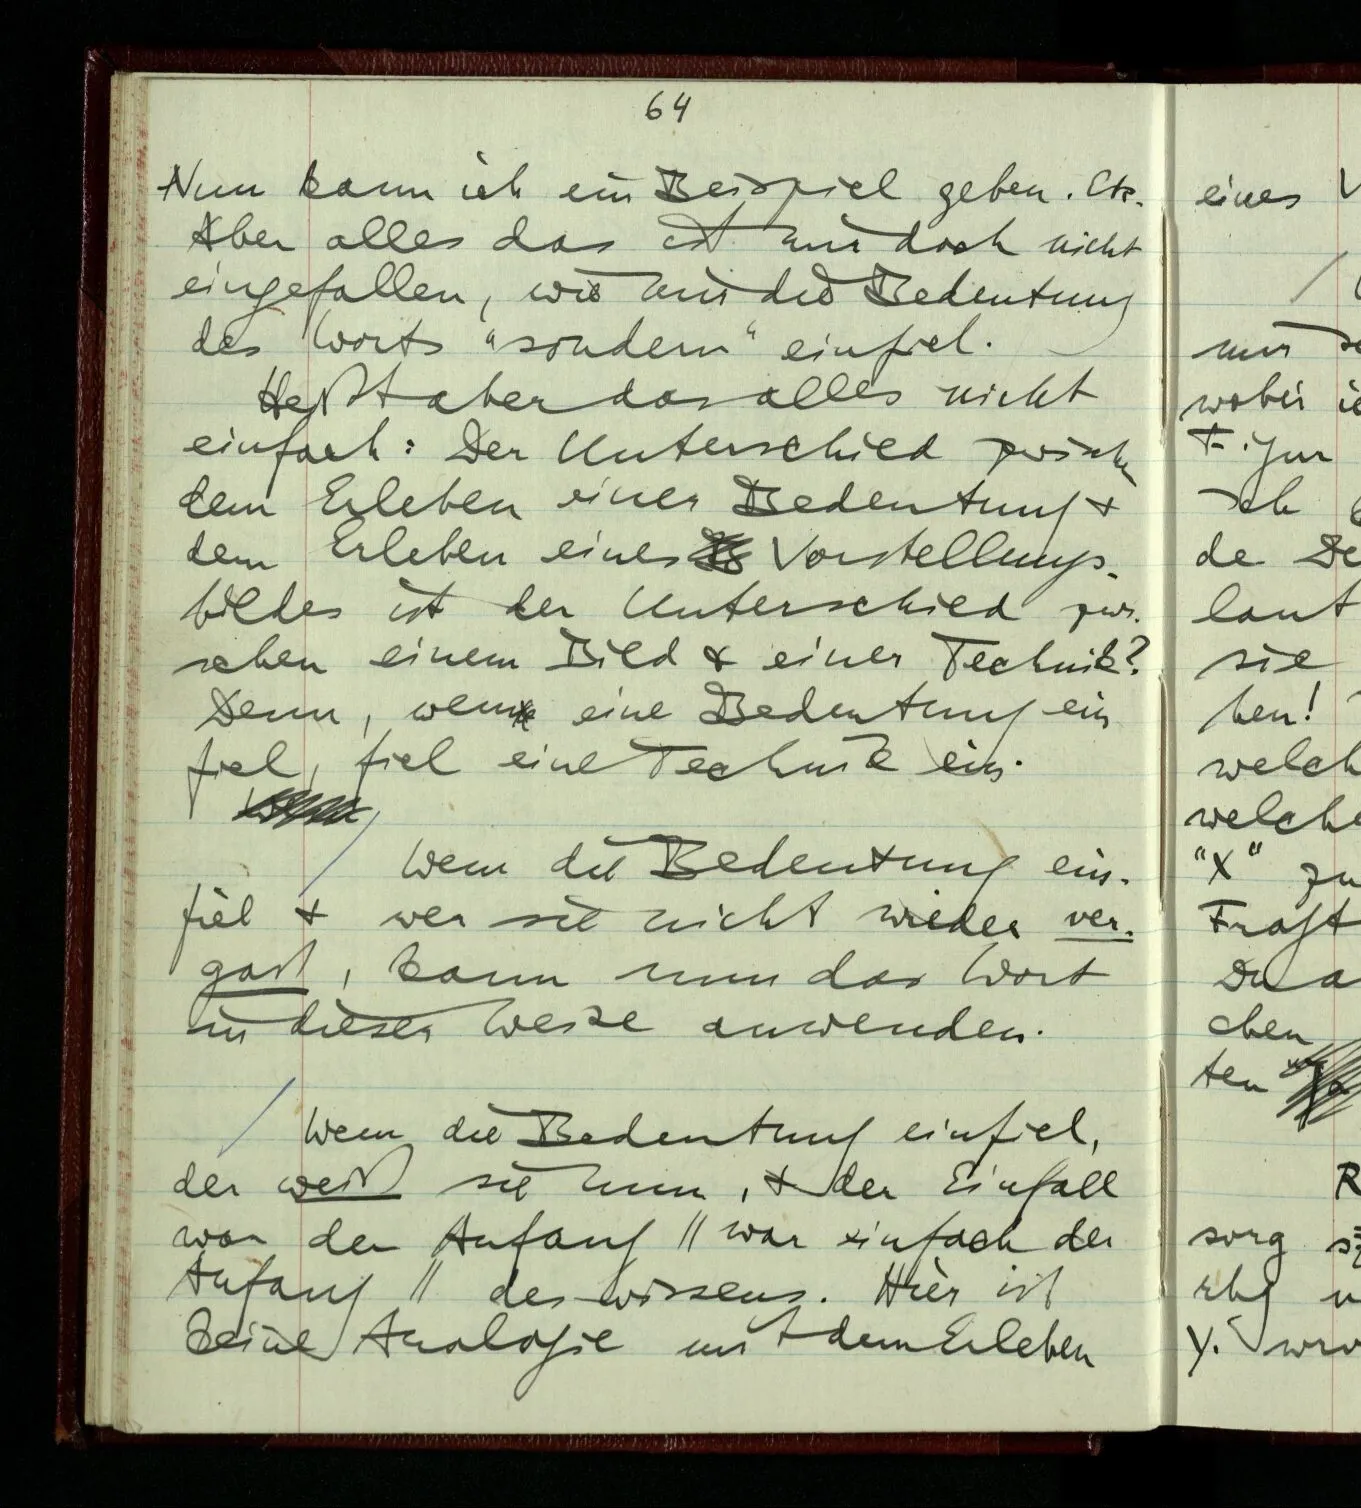 64
Nun kann ich ein Beispiel geben. Etc.
Aber alles das ist mir doch nicht
eingefallen, wie mir die Bedeutung
des Worts "sondern" einfiel.
Heißt aber das alles nicht
einfach: Der Unterschied zwischen
dem Erleben einer Bedeutung &
dem Erleben eines Vorstellungs-
bildes ist der Unterschied zwi-
schen einem Bild & einer Technik?
Denn, wem eine Bedeutung ein
fiel, fiel eine Technik ein.
/ Wem die Bedeutung ein-
fiel & wer sie nicht wieder ver-
gaß, kann nun das Wort
in dieser Weise anwenden.
/ Wem die Bedeutung einfiel,
der weiß sie nun, & der Einfall
war der Anfang // war einfach der
Anfang // des Wissens. Hier ist
keine Analogie mit dem Erleben
eines V
/
nur
wobei
Figur
Ich
de De
laut
sie
hen!
welch
welche
"X" zu
Fraft
Du a
chen
ten
R
sorg
rhg
y.